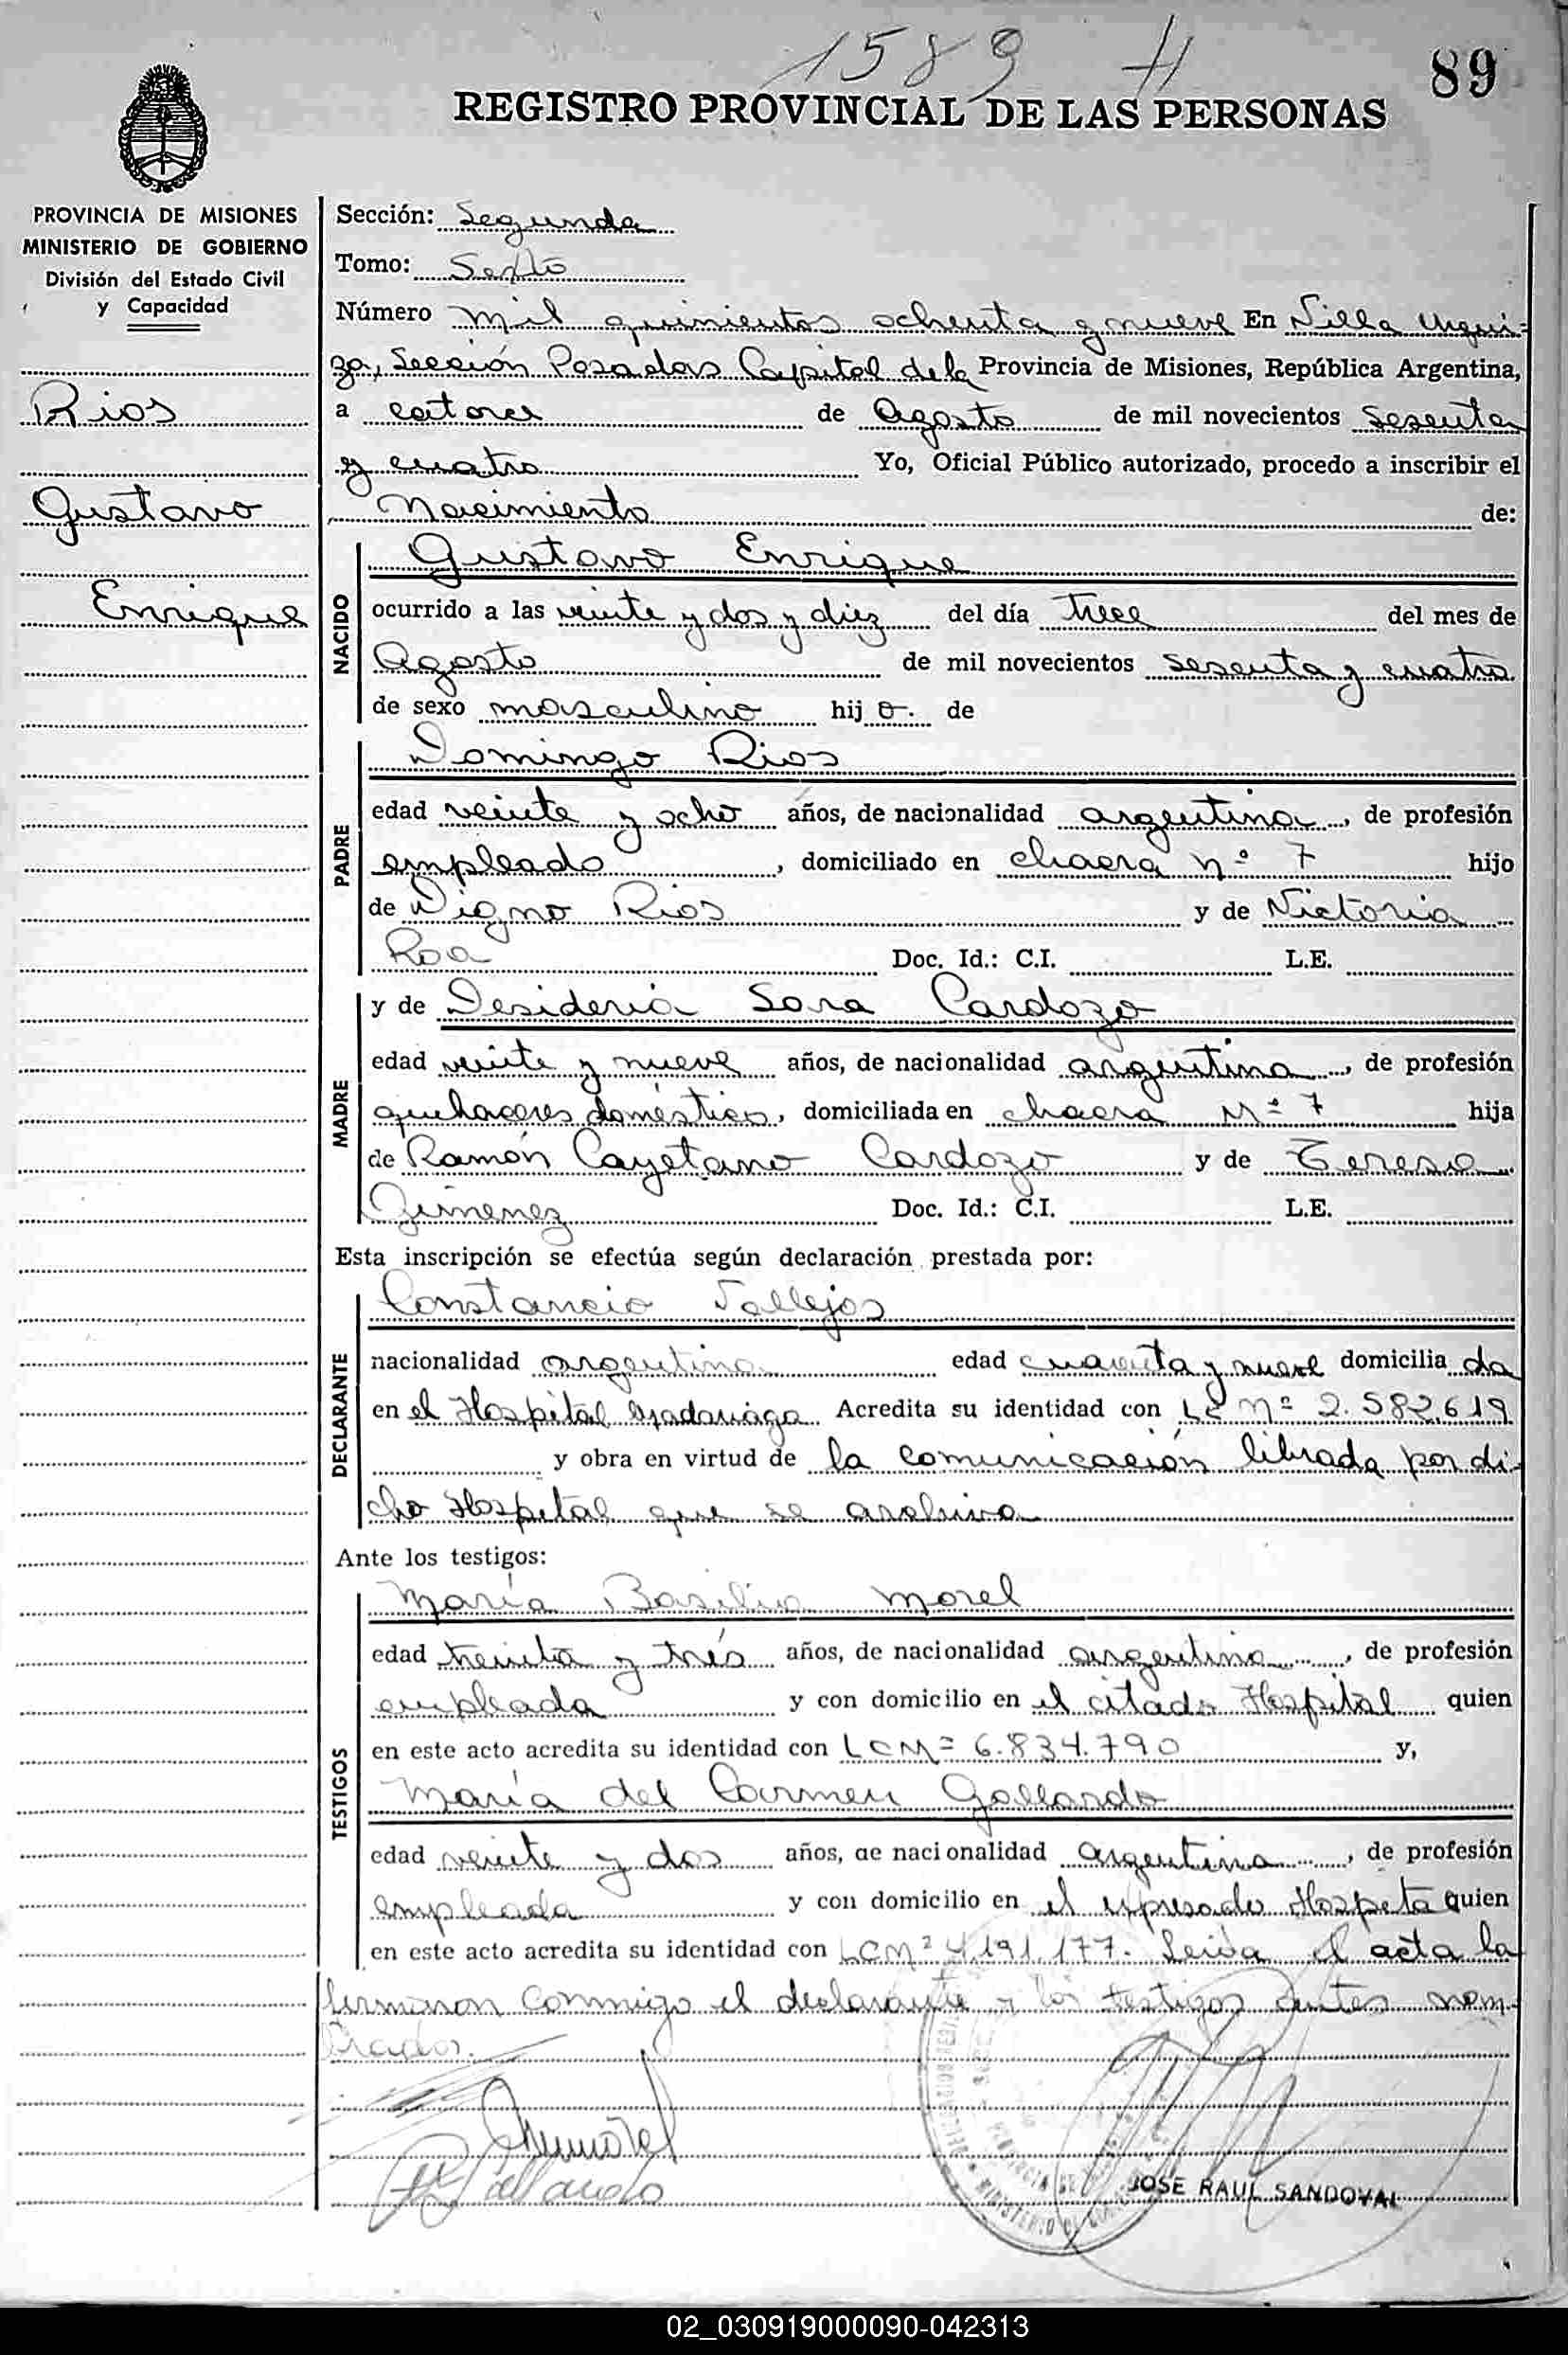 1589 H
89
REGISTRO PROVINCIAL DE LAS PERSONAS
PROVINCIA DE MISIONES
MINISTERIO DE GOBIERNO
División del Estado Civil
y Capacidad
Rios
Gustavo
Enrique
Sección: Segunda
Tomo: Sexto
Número mil quinientos ochenta y nueve En Villa Urqui-
za, Sección Posadas Capital de la Provincia de Misiones, República Argentina,
a catorce de Agosto de mil novecientos sesenta
y cuatro Yo, Oficial Público autorizado, procedo a inscribir el
Nacimiento de:
NACIDO
Gustavo Enrique
ocurrido a las veinte y dos y diez del día trece del mes de
Agosto de mil novecientos sesenta y cuatro
de sexo masculino hijo de
PADRE
Domingo Rios
edad veinte y ocho años, de nacionalidad argentina, de profesión
empleado, domiciliado en chacra nº 7 hijo
de Digno Rios y de Victoria
Roa Doc. Id.: C.I. L.E.
MADRE
y de Desideria Sara Cardozo
edad veinte y nueve años, de nacionalidad argentina, de profesión
quehaceres domésticos, domiciliada en chacra Nº 7 hija
de Ramón Cayetano Cardozo y de Teresa
Gimenez Doc. Id.: C.I. L.E.
Esta inscripción se efectúa según declaración prestada por:
DECLARANTE
Constancio Vallejos
nacionalidad argentina edad cuarenta y nueve domicilia da
en el Hospital Madariaga Acredita su identidad con LE nº 2.582.619
y obra en virtud de la comunicación librada por di-
cho Hospital que se archiva
Ante los testigos:
TESTIGOS
María Basilia Morel
edad treinta y trés años, de nacionalidad argentina, de profesión
empleada y con domicilio en el citado Hospital quien
en este acto acredita su identidad con LC Nº 6.834.790 y,
María del Carmen Gallardo
edad veinte y dos años, de nacionalidad argentina, de profesión
empleada y con domicilio en el expresado Hospita quien
en este acto acredita su identidad con LC Nº 4.191.177. Leida el acta la
firmaron conmigo el declarante y los testigos antes nom-
brados.
JOSE RAUL SANDOVAL
02_030919000090-042313